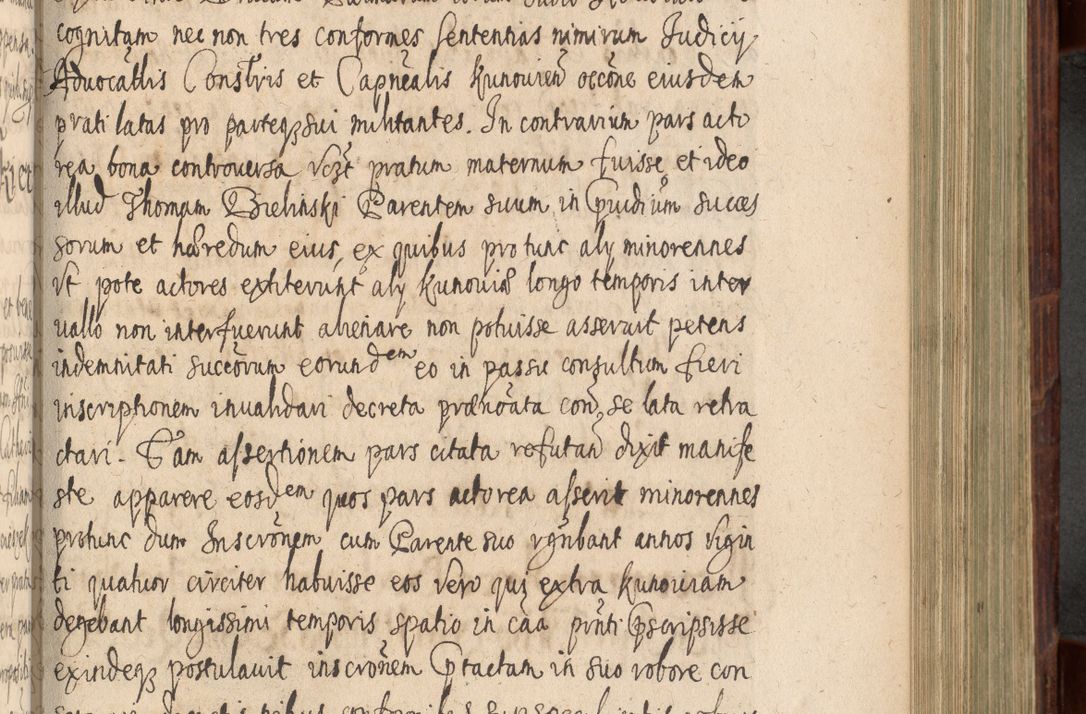 cognitam nec non tres conformes sententias nimirum Judicij
Advocatlis Constris et Capnealis Kunovien occõne eiusdem
prati latas pro parteqꝫ sui militantes. In contrarium pars acto
rea bona controversa vczt pratum maternum fuisse et ideo
illud Thomam Bielinski Parentem suum in Pridium succes
sorum et haeredum eius, ex quibus pro tunc alij minorennes
vt pote actores extiterunt alij Kunoviae longo temporis inter
uallo non interfuerunt alienare non potuisse asseruit petens
indemnitati succõrum eorundem eo in passu consultum fieri
inscriptionem inualidari decreta praenõata con se lata retra
ctari. Tam assertionem pars citata refutan dixit manife
ste apparere eosdem quos pars actorea asserit minorennes
protunc dum Inscrõnem cum Parente suo rgnbant annos vigin
ti quatuor circiter habuisse eos vero qui extra Kunoviam
degebant longissimi temporis spatio in cãa pñti Pscripsisse
exindeqꝫ postulauit inscrõnem Ptactam in suo robore con